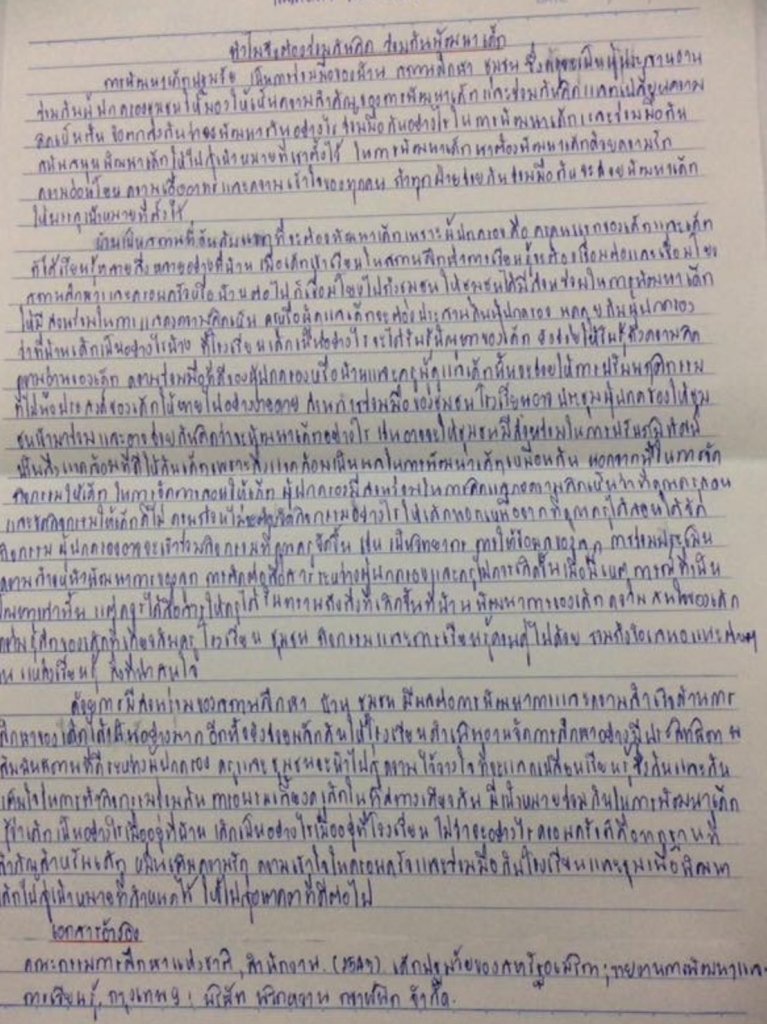 ทำไมจึงต้องร่วมกันคิด ร่วมกันพัฒนาเด็ก
การพัฒนาเด็กปฐมวัย เป็นการร่วมมือของบ้าน สถานศึกษา ชุมชน ซึ่ง
ร่วมกันผู้ปกครองชุมชนให้มองให้เห็นความสำคัญของการพัฒนาเด็กและร่วมกันคิดแลกเปลี่ยนความ
คิดเป็นต้น ข้อตกลงกันว่าจะพัฒนากันอย่างไร ร่วมมือกันอย่างไร ในการพัฒนาเด็กและร่วมมือกัน
สนับสนุนพัฒนาเด็กให้ไปสู่เป้าหมายที่เราตั้งไว้ ในการพัฒนาเด็กเราต้องพัฒนาเด็กด้วยความรัก
ความอ่อนโยน ความเอื้ออาทรและความเข้าใจของทุกคน ถ้าทุกฝ่ายช่วยกันร่วมมือกันจะช่วยพัฒนาเด็ก
ให้บรรลุเป้าหมายที่ตั้งไว้
บ้านเป็นสถานที่อันดับแรกที่จะต้องพัฒนาเด็กเพราะผู้ปกครองคือ ครูคนแรกของเด็กและเด็ก
ก็ได้เรียนรู้หลายสิ่งหลายอย่างที่บ้าน เมื่อเด็กเข้าเรียนในสถานศึกษาการเรียนรู้จะต้องเชื่อมต่อและเชื่อมโยง
สถานศึกษาและครอบครัวหรือบ้านต่อไปก็เชื่อมโยงไปถึงชุมชน ให้ชุมชนได้มีส่วนร่วมในการพัฒนาเด็ก
ให้มีส่วนร่วมในการแสดงความคิดเห็น ครูหรือผู้ดูแลเด็กจะต้องประสานกับผู้ปกครอง พูดคุยกับผู้ปกครอง
ว่าที่บ้านเด็กเป็นอย่างไรบ้าง ที่โรงเรียนเด็กเป็นอย่างไร จะได้รับรู้ปัญหาของเด็ก ยังช่วยให้รับรู้ถึงความคิด
ความอ่านของเด็ก ความร่วมมือที่ดีของผู้ปกครองหรือบ้านและครูผู้ดูแลเด็กนั้นจะช่วยให้การปรับพฤติกรรม
ที่ไม่พึงประสงค์ของเด็กให้หายไปอย่างง่ายดาย ส่วนการร่วมมือของชุมชน โรงเรียนอาจ ประชุมผู้ปกครองให้ชุม
ชนเข้ามาร่วมและอาจช่วยกันคิดว่าจะพัฒนาเด็กอย่างไร เช่นอาจจะให้ชุมชนมีส่วนร่วมในการปรับภูมิทัศน์
เป็นสิ่งแวดล้อมที่ดีให้กับเด็กเพราะสิ่งแวดล้อมเป็นผลในการพัฒนาเด็กเหมือนกัน นอกจากนี้ในการจัด
กิจกรรมให้เด็ก ในการจัดการสอนให้เด็ก ผู้ปกครองมีส่วนร่วมในการคิดแสดงความคิดเห็นว่าที่คุณครูสอน
และจัดกิจกรรมให้เด็กดีไหม
กิจกรรม ผู้ปกครองอาจจะเข้าร่วมกิจกรรมที่คุณครูจัดขึ้น เช่น เป็นวิทยากร การให้ข้อมูลของลูก การร่วมประเมิน
ความก้าวหน้าพัฒนาการของลูก การติดต่อสื่อสารระหว่างผู้ปกครองและครู เมื่อมีเหตุการณ์ที่เป็น
ปัญหาเท่านั้น แต่ครูจะได้สื่อสารให้ครูได้รับทราบถึงสิ่งที่เกิดขึ้นที่บ้าน พัฒนาการของเด็ก ความสนใจของเด็ก
ความรู้สึกของเด็กที่เกี่ยวกับครู โรงเรียน ชุมชน กิจกรรมและการเรียนรู้ควบคู่ไปด้วย รวมถึงข้อเสนอแนะ
แหล่งเรียนรู้ สิ่งที่น่าสนใจ
ด้วยการมีส่วนร่วมของสถานศึกษา บ้าน ชุมชน มีผลต่อการพัฒนาการและความสำเร็จด้านการ
ศึกษาของเด็กได้เป็นอย่างมาก อีกทั้งยังช่วยผลักดันให้โรงเรียนดำเนินงานจัดการศึกษาอย่างมีประสิทธิภาพ
สัมพันธภาพที่ดีระหว่างผู้ปกครอง ครูและชุมชนจะนำไปสู่ความไว้วางใจที่จะแลกเปลี่ยนเรียนรู้ซึ่งกันและกัน
เต็มใจในการทำกิจกรรมร่วมกัน การอบรมเลี้ยงดูเด็กในทิศทางเดียวกัน มีเป้าหมายร่วมกันในการพัฒนาเด็ก
รู้ว่าเด็กเป็นอย่างไรเมื่ออยู่ที่บ้าน เด็กเป็นอย่างไรเมื่ออยู่ที่โรงเรียน ไม่ว่าจะอย่างไรครอบครัวก็คือรากฐานที่
สำคัญสำหรับเด็ก หมั่นเติมความรัก ความเข้าใจในครอบครัวและร่วมมือกับโรงเรียนและชุมเพื่อพัฒนา
เด็กไปสู่เป้าหมายที่กำหนดไว้ ให้ไปสู่อนาคตที่ดีต่อไป
เอกสารอ้างอิง
คณะกรรมการศึกษาแห่งชาติ, สำนักงาน. (2542) เด็กปฐมวัยของสหรัฐอเมริกา; รายงานการพัฒนาและ
การเรียนรู้, กรุงเทพฯ : บริษัท พริกหวาน กราฟฟิก จำกัด.